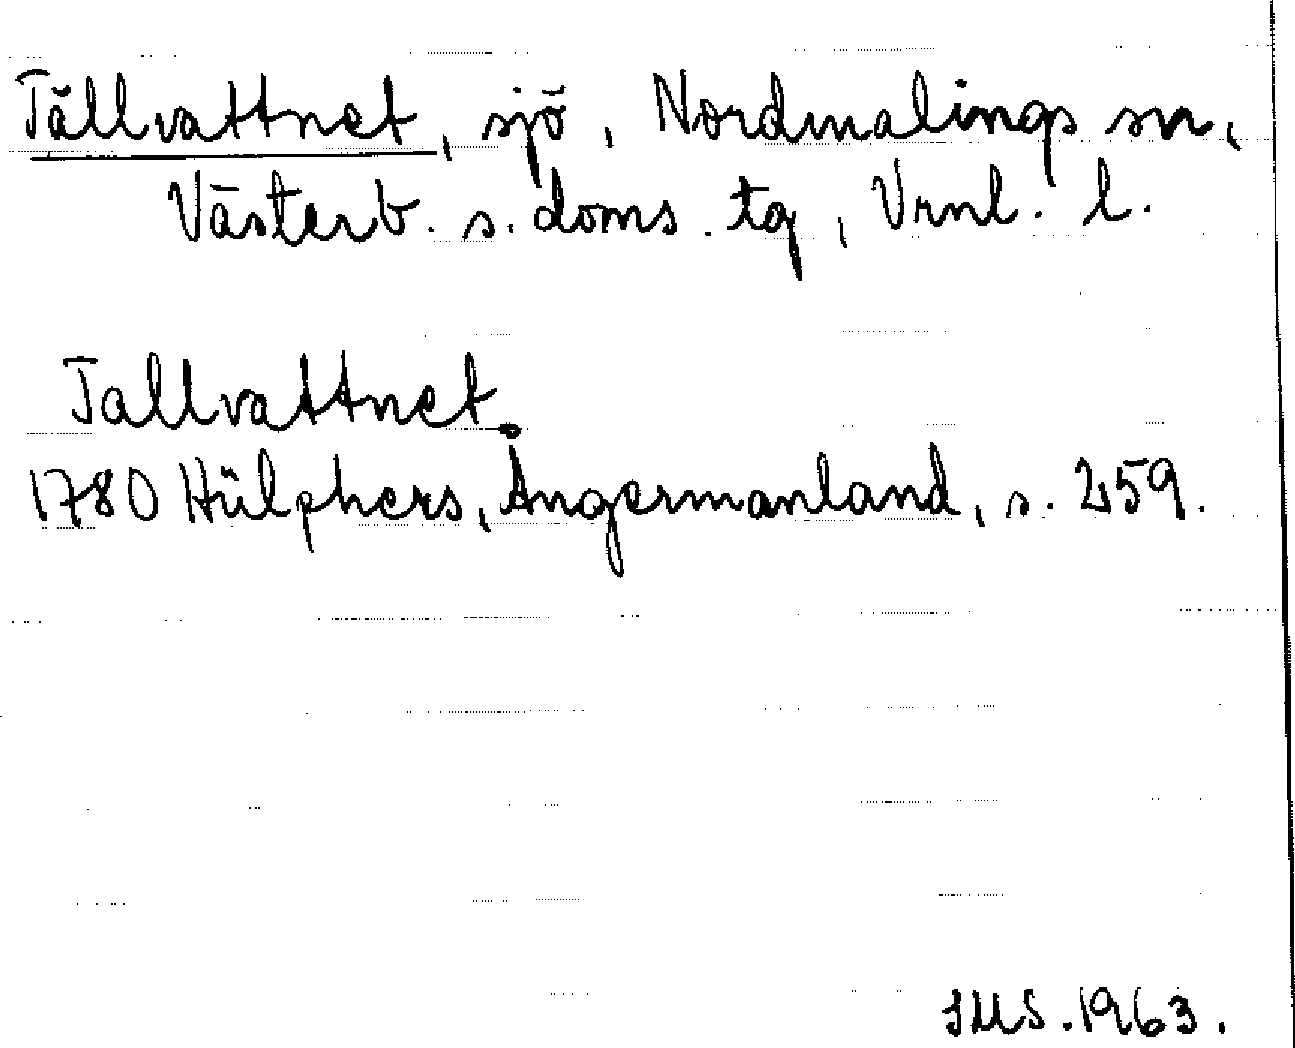 Tållvattnet, sjö, Nordmalings sn,
Västerb. s. doms. tg, Vrnl. l.
Tallvattnet.
1780 Hülphers, Ångermanland, s. 259.
IMS. 1963.